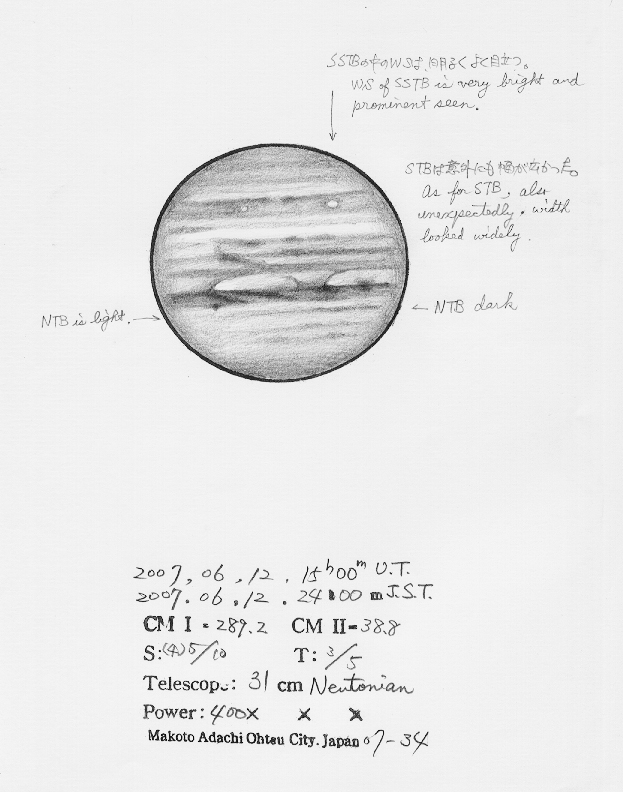 SSTBの中のWSは、明るくよく目立つ。
WS of SSTB is very bright and
prominent seen.
STBは意外にも幅が広かった。
As for STB, also
unexpectedly, width
looked widely.
NTB is light.
NTB dark
2007, 06, 12. 15h00m U.T.
2007. 06. 12. 24 00 m J.S.T.
CM I = 289.2 CM II = 38.8
S: (4)5/10 T: 3/5
Telescope: 31 cm Newtonian
Power: 400× × ×
Makoto Adachi Ohtsu City. Japan 07-34